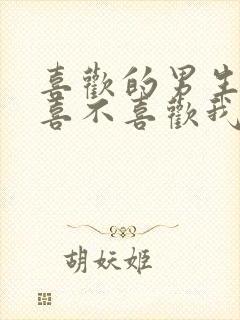 喜歡的男生
喜不喜歡我
胡妖姬